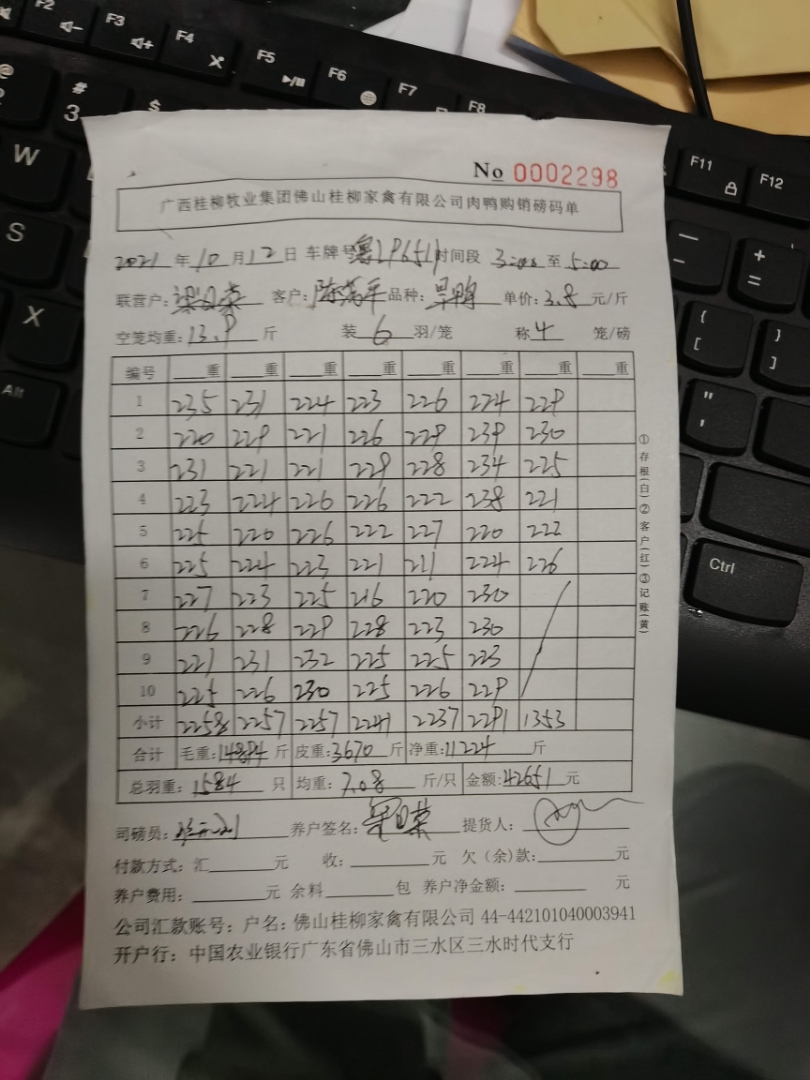 F2 F3 F4 F5 F6 F7 F8
@ # 3 $
W F11 F12
S
X
Alt
Ctrl
No 0002298
广西桂柳牧业集团佛山桂柳家禽有限公司肉鸭购销磅码单
2021 年 10 月 12 日 车牌号 时间段 3:00 至 5:00
联营户: 客户: 品种: 旱鸭 单价: 3.8 元/斤
空笼均重: 13.9 斤 装 6 羽/笼 称 4 笼/磅
编号 重 重 重 重 重 重 重 重
1 235 231 224 223 226 224 229
2 220 229 221 226 229 239 230
3 231 221 221 229 228 234 225
4 223 224 226 226 222 238 221
5 225 220 226 222 227 220 222
6 225 224 223 221 211 224 226
7 227 223 225 216 220 230
8 226 228 229 228 223 230
9 221 231 232 225 225 223
10 225 226 230 225 226 229
小计 2258 2257 2257 2241 2237 2291 1353
合计 毛重: 14894 斤 皮重: 3670 斤 净重: 11224 斤
总羽重: 1584 只 均重: 7.08 斤/只 金额: 42651 元
司磅员: 养户签名: 提货人:
付款方式: 汇 元 收: 元 欠(余)款: 元
养户费用: 元 余料 包 养户净金额: 元
公司汇款账号: 户名: 佛山桂柳家禽有限公司 44-442101040003941
开户行: 中国农业银行广东省佛山市三水区三水时代支行
①存根(白)②客户(红)③记账(黄)